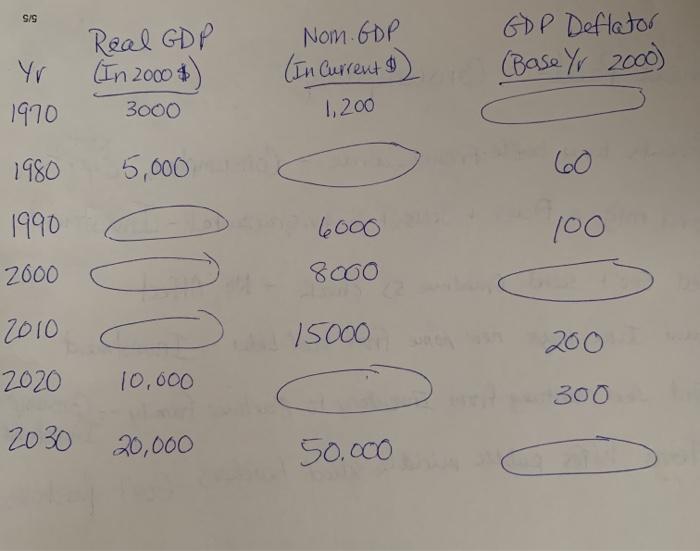 5/5
Real GDP Nom. GDP GDP Deflator
Yr (In 2000 $) (In Current $) (Base Yr 2000)
1970 3000 1,200
1980 5,000 60
1990 6000 100
2000 8000
2010 15000 200
2020 10,000 300
2030 20,000 50.000